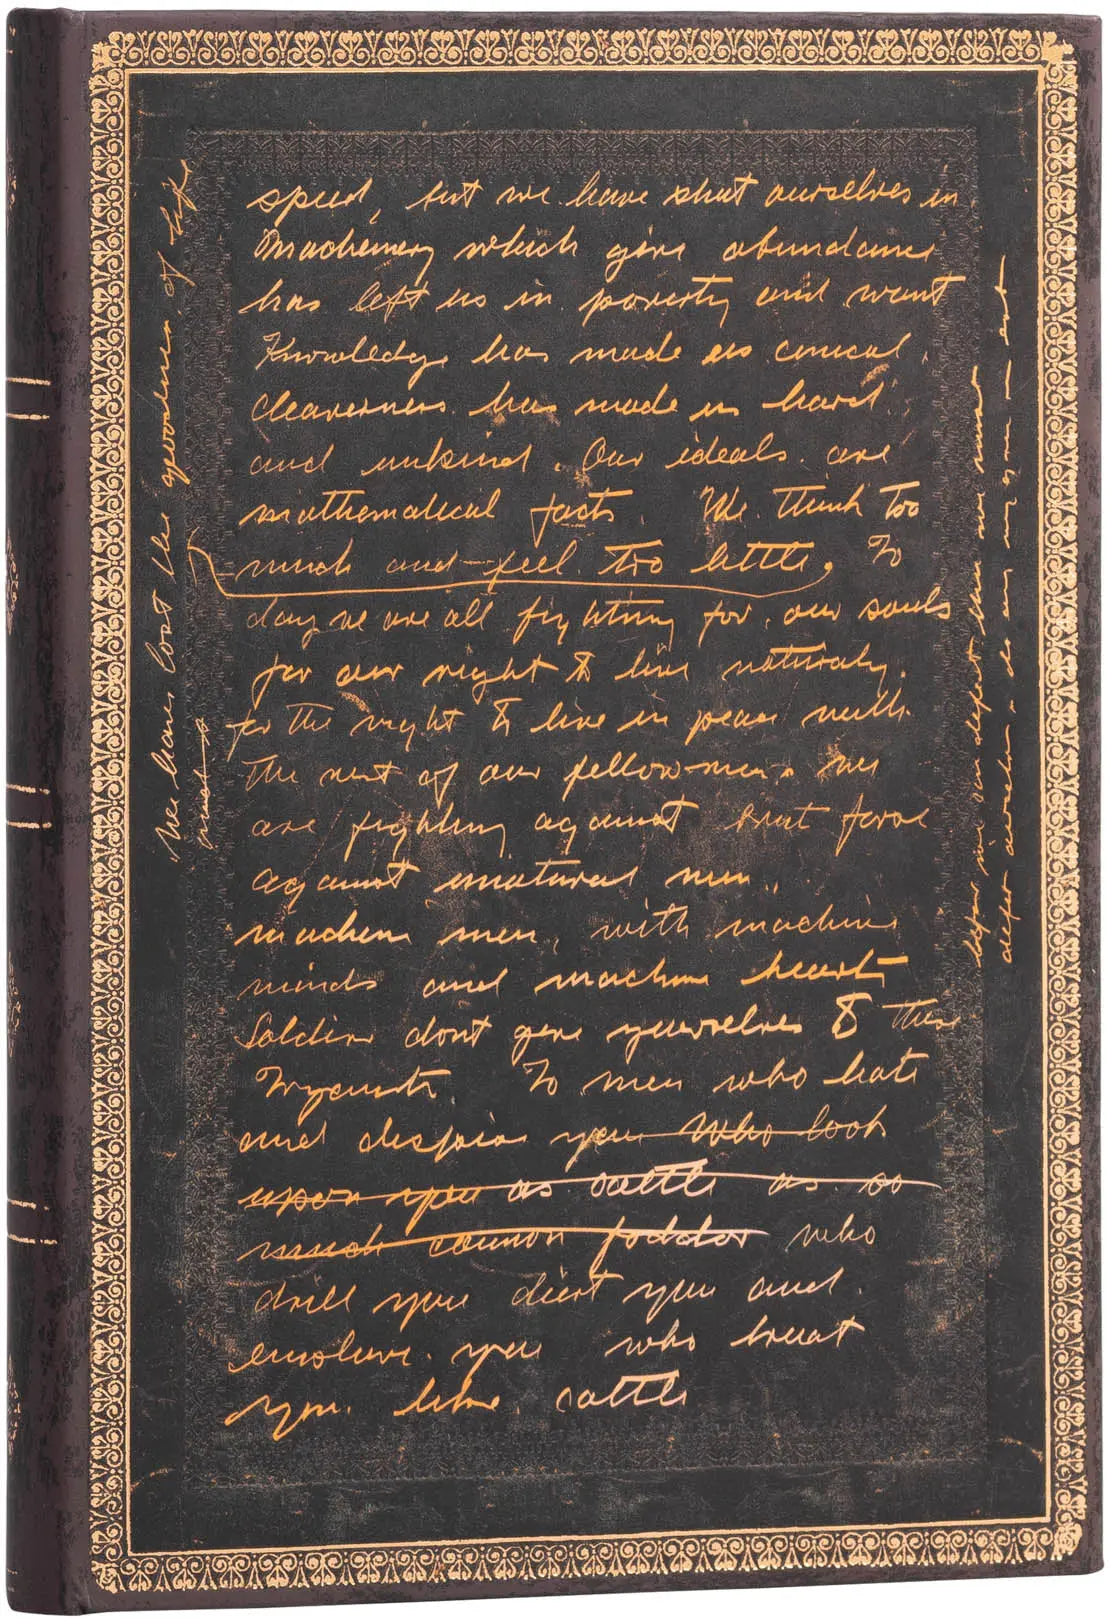 speed, but we have shut ourselves in
Machinery which give abundance
has left us in poverty and want
Knowledge has made us cinical,
cleaverness has made us hard
and unkind. Our ideals are
mathematical facts. We think too
much and feel too little. To
day we are all fighting for our souls
for our right to live naturaly.
for the right to live in peace with
the rest of our fellow men. We
are fighting against brut force
against unatural men.
machen men, with machine
minds and machine hearts
Soldiers dont give yourselves to these
To men who hate
and despise you who look
upon you as cattle as so
much cannon fodder who
drill you diert you and
enslave you who treat
you like cattle
We have lost the goodness of life
much
before we can
deeper